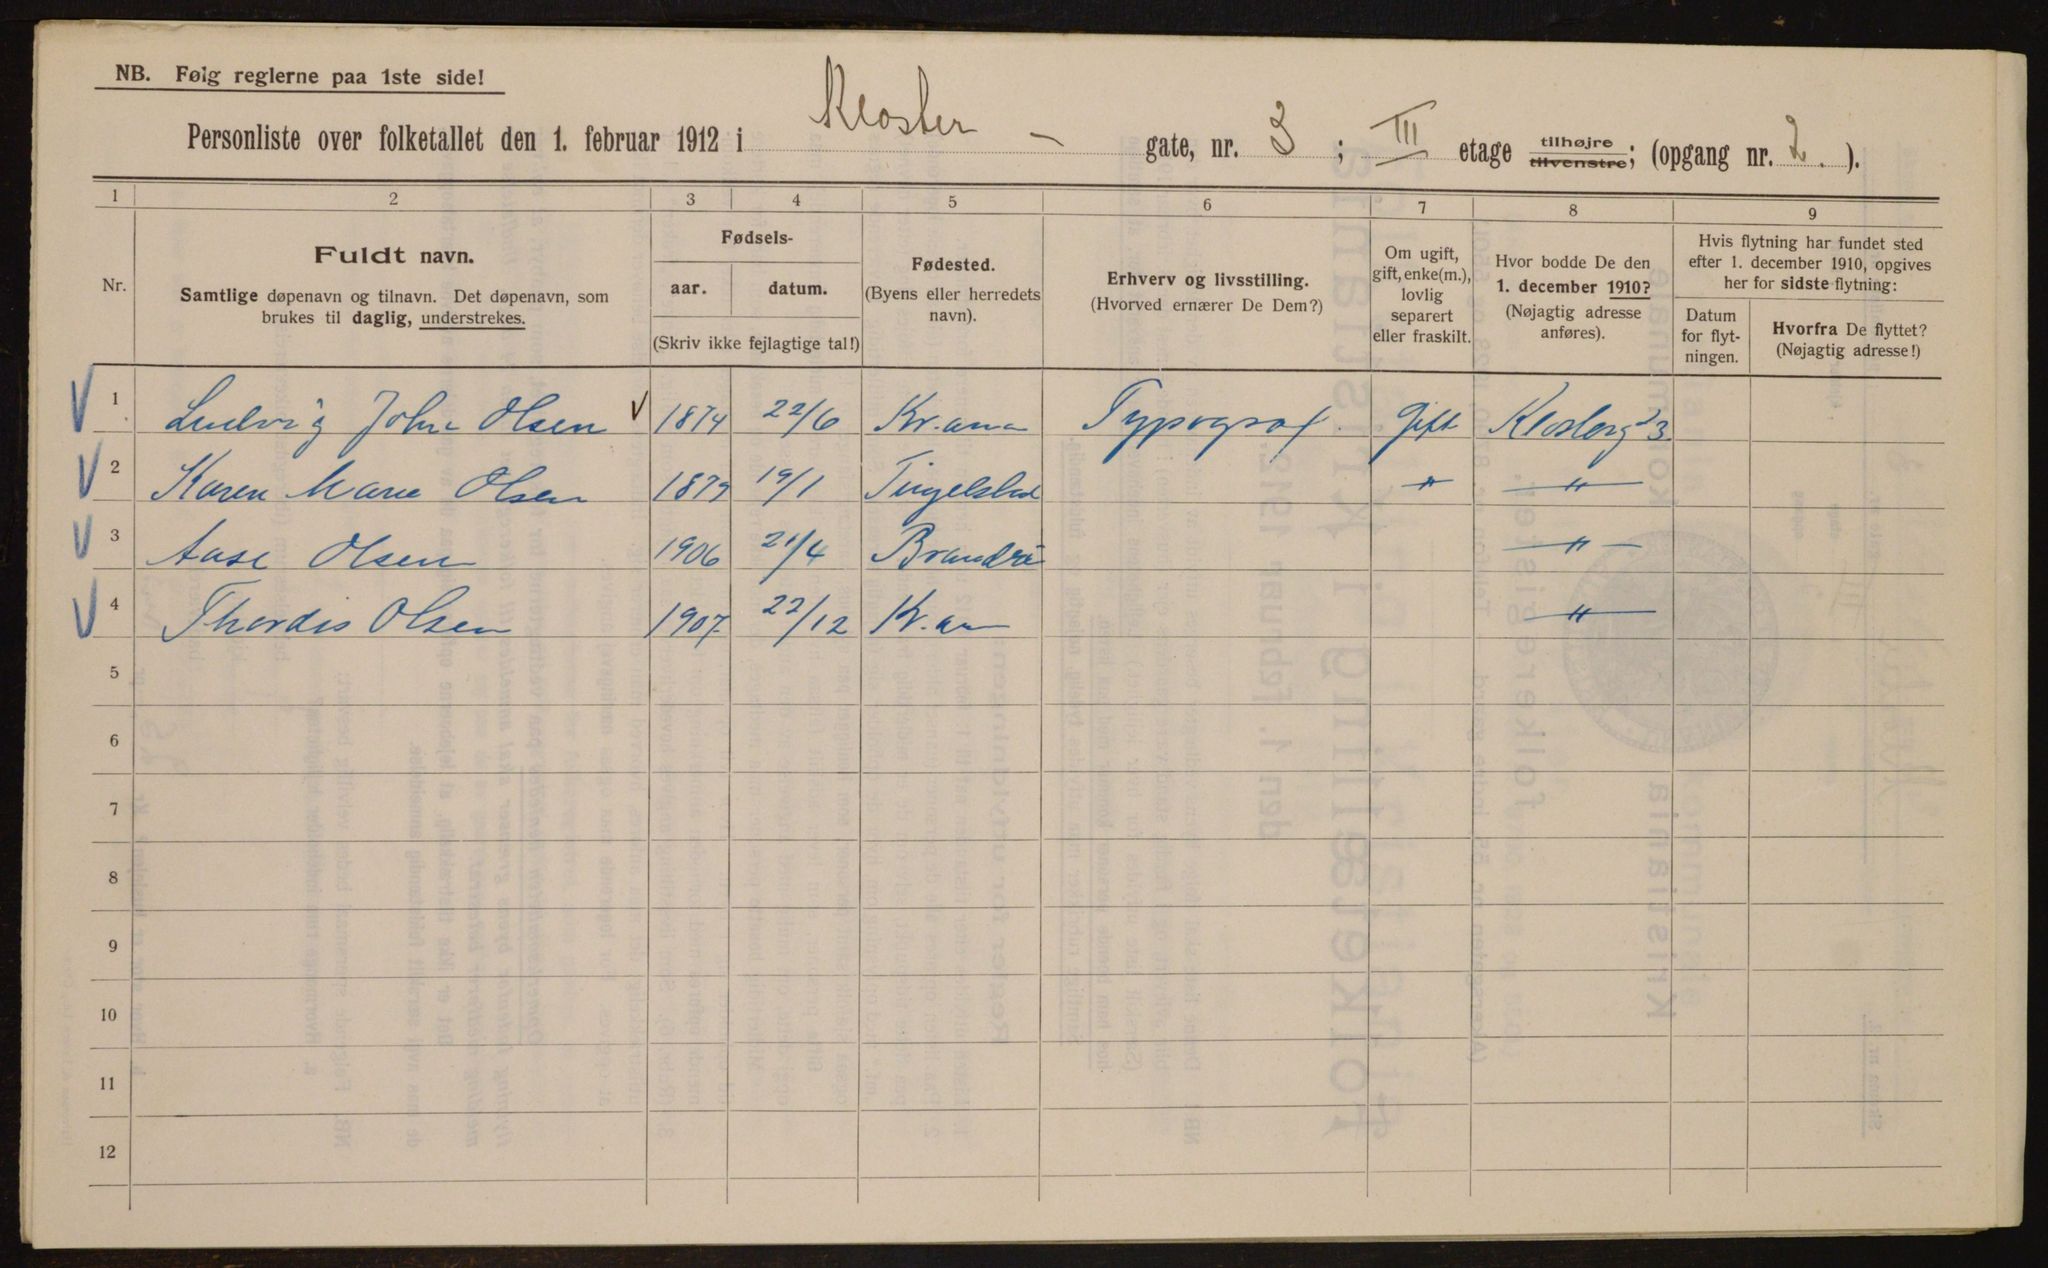 NB. Følg reglerne paa 1ste side!
Personliste over folketallet den 1. februar 1912 i Kloster - gate, nr. 3; III etage tilhøjre tilvenstre; (opgang nr. 2.).
1 2 3 4 5 6 7 8 9
Nr.
Fuldt navn.
Samtlige døpenavn og tilnavn. Det døpenavn, som
brukes til daglig, understrekes.
Fødsels-
aar. datum.
(Skriv ikke fejlagtige tal!)
Fødested.
(Byens eller herredets
navn).
Erhverv og livsstilling.
(Hvorved ernærer De Dem?)
Om ugift,
gift, enke(m.),
lovlig
separert
eller fraskilt.
Hvor bodde De den
1. december 1910?
(Nøjagtig adresse
anføres).
Hvis flytning har fundet sted
efter 1. december 1910, opgives
her for sidste flytning:
Datum
for flyt-
ningen.
Hvorfra De flyttet?
(Nøjagtig adresse!)
1 Ludvig John Olsen 1874 22/6 Kr.ania Typograf. Gift Klosterg 3
2 Karen Marie Olsen 1879 19/1 Tingelstad " "
3 Aase Olsen 1906 21/4 "
4 Thordis Olsen 1907. 22/12 Kr.an "
5
6
7
8
9
10
11
12